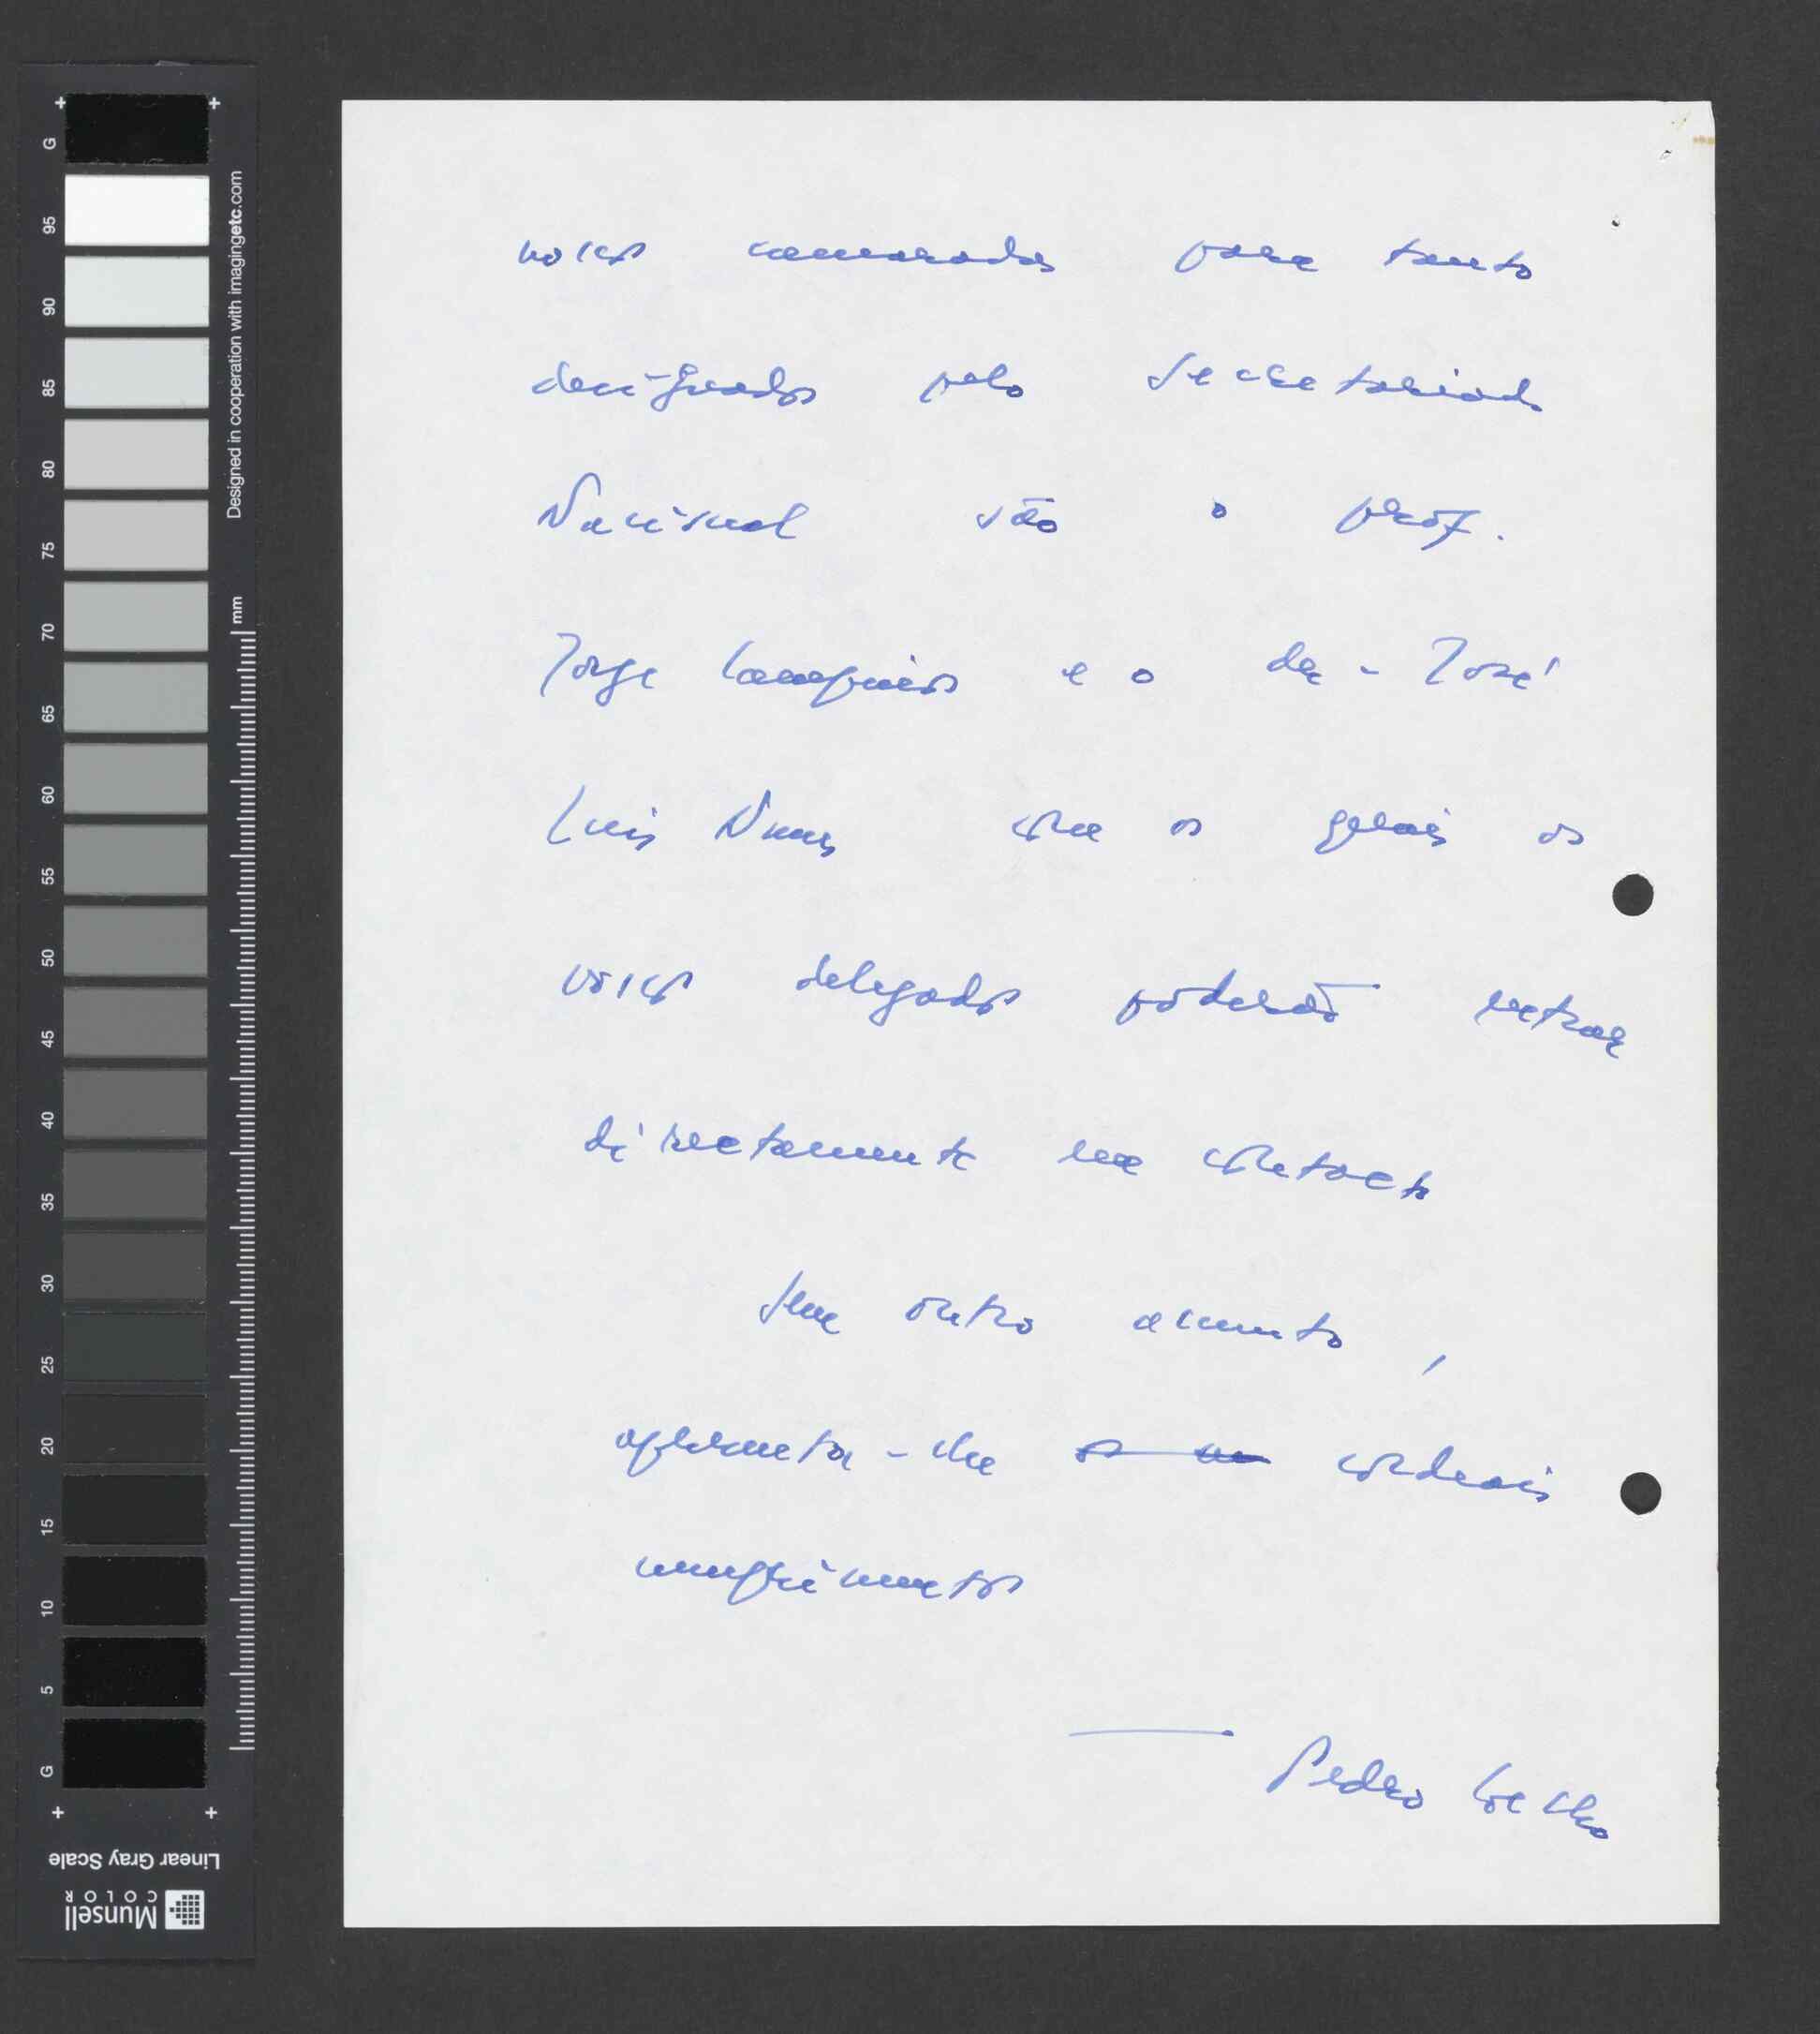 nossos camaradas para tanto
designados pelo Secretariado
Nacional são o prof.
Jorge Campinos e o dr. José
Luis Nunes com os quais os
vossos delegados poderão entrar
directamente em contacto
Sem outro assunto,
apresenta-lhe cordeais
cumprimentos
Pedro Coelho
G
95
90
85
80
75
70
65
60
55
50
45
40
35
30
25
20
15
10
5
G
Designed in cooperation with imagingetc.com
mm
Linear Gray Scale
Munsell
COLOR